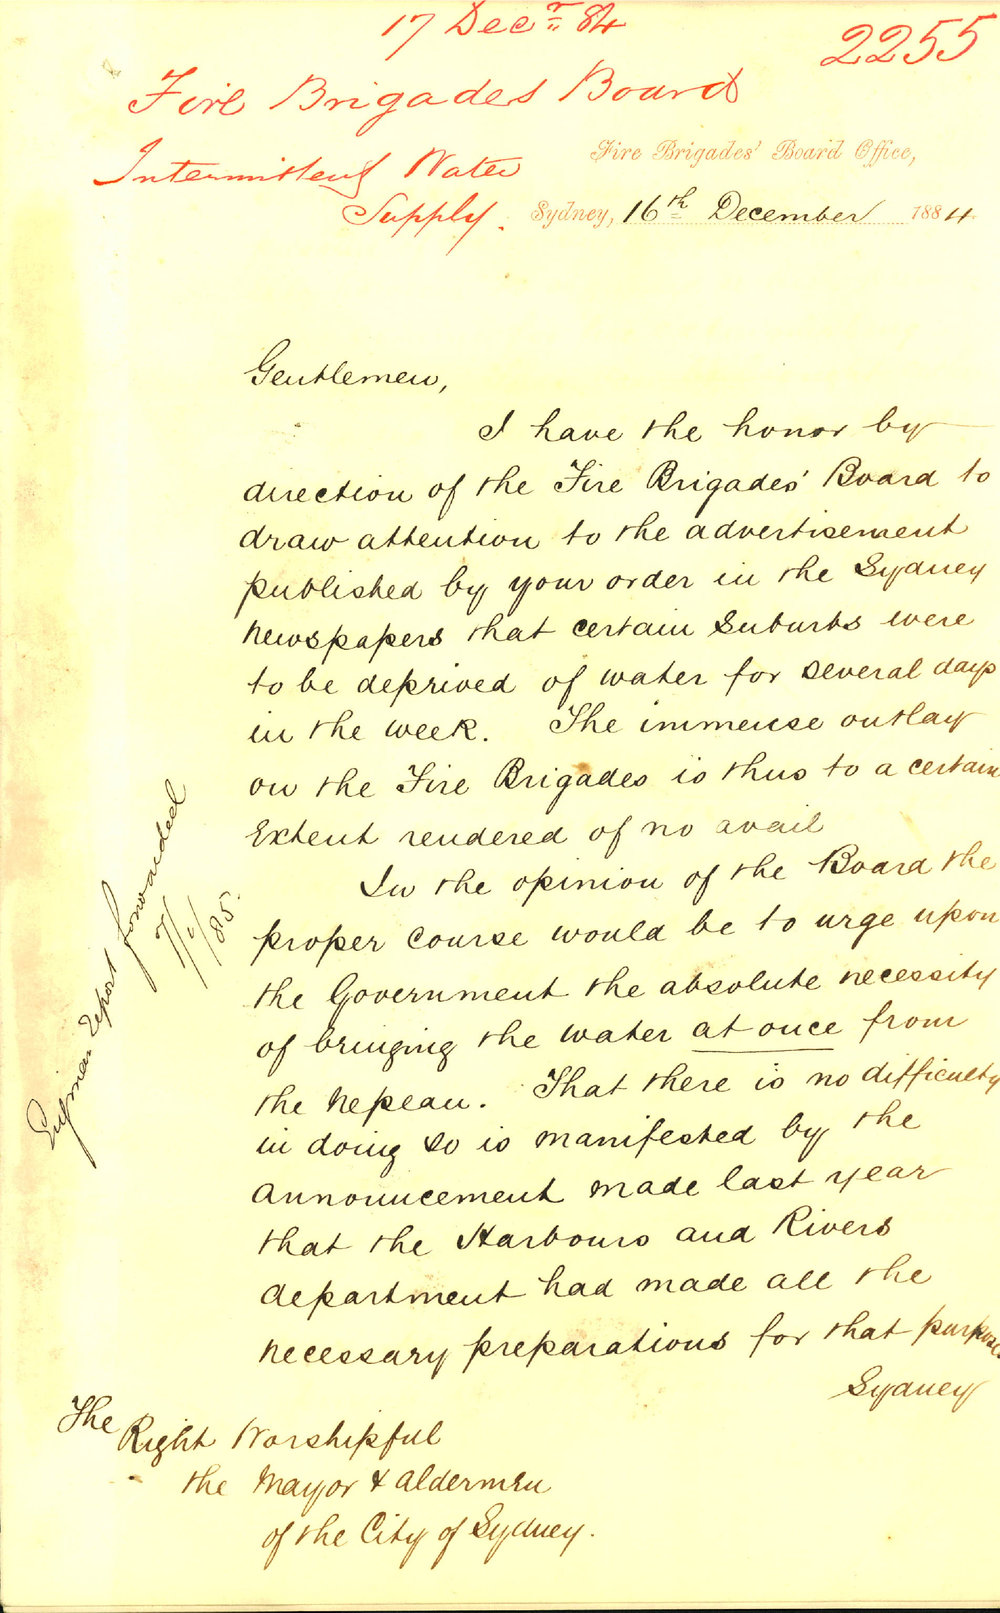 17 Decr 84
2255
Fire Brigades Board
Intermittent Water
Supply.
Fire Brigades' Board Office,
Sydney, 16th December 1884.
Gentlemen,
I have the honor by
direction of the Fire Brigades' Board to
draw attention to the advertisement
published by your order in the Sydney
Newspapers that certain Suburbs were
to be deprived of water for several days
in the week. The immense outlay
on the Fire Brigades is thus to a certain
Extent rendered of no avail
In the opinion of the Board the
proper course would be to urge upon
the Government the absolute necessity
of bringing the water at once from
the Nepean. That there is no difficulty
in doing so is manifested by the
announcement made last year
that the Harbours and Rivers
department had made all the
necessary preparations for that purpose
Sydney
The
Right Worshipful
the Mayor & Aldermen
of the City of Sydney.
report forwarded
7/1/85.